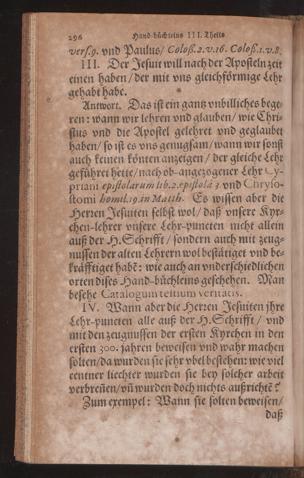 296 Hand-büchleins III. Theils
vers.9. vnd Paulus/ Coloß.2.v.16. Coloß.1.v.8.
III. Der Jesuit will nach der Aposteln zeit
einen haben/ der mit vns gleichförmige Lehr
gehabt habe.
Antwort. Das ist ein gantz vnbilliches bege-
ren: wann wir lehren vnd glauben/ wie Chri-
stus vnd die Apostel gelehret vnd geglaubet
haben/ so ist es vns genugsam/ wann wir sonst
auch keinen könten anzeigen/ der gleiche Lehr
geführet hette/ nach ob-angezogener Lehr Cy-
priani epistolarum lib.2.epistola 3. vnd Chryso-
stomi homil.19.in Matth. Es wissen aber die
Herren Jesuiten selbst wol/ daß vnsere Kyr-
chen-lehrer vnsere Lehr-puncten nicht allein
auß der H. Schrifft/ sondern auch mit zeug-
nussen der alten Lehrern wol bestätiget vnd be-
kräfftiget habẽ: wie auch an vnderschiedlichen
orten dises Hand-büchleins geschehen. Man
besehe Catalogum testium veritatis.
IV. Wann aber die Herren Jesuiten jhre
Lehr-puncten alle auß der H. Schrifft/ vnd
mit den zeugnussen der ersten Kyrchen in den
ersten 300. jahren beweisen vnd wahr machen
solten/ da wurden sie sehr vbel bestehen: wie viel
centner liechter wurden sie bey solcher arbeit
verbreñen/ vñ wurden doch nichts außrichtẽ?
Zum exempel: Wann sie solten beweisen/
daß